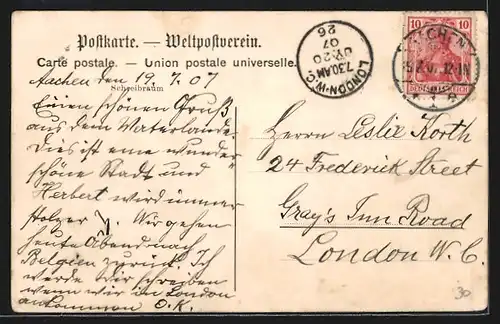 Postkarte. — Weltpostverein.
Carte postale. — Union postale universelle.
Aachen den 19.7.07
Schreibraum
Einen schönen Gruß
aus dem Vaterlande.
Dies ist eine wunder
schöne Stadt und
Herbert wird immer
stolzer. Wir gehen
heute Abend nach
Belgien zurück. Ich
werde Dir schreiben
wenn wir in London
ankommen O.K.
LONDON. W.C.
7.30AM
JY 20
07
26
10 10
AACHEN
DEUTSCHES REICH
Herrn Leslie Korth
24 Frederick Street
Gray's Inn Road
London W.C.
30